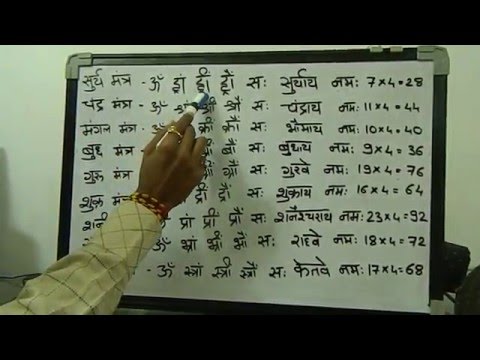 सुर्य मंत्र - ॐ ह्रां ह्रीं ह्रौं सः सुर्याय नमः 7×4=28
चंद्र मंत्र - ॐ श्रीं श्रौं सः चंद्राय नमः 11×4=44
मंगल मंत्र - ॐ क्रीं क्रौं सः भौमाय नमः 10×4=40
बुध मंत्र - सः बुधाय नमः 9×4=36
गुरू मंत्र सः गुरवे नमः 19×4=76
शुक्र मं द्रीं द्रौं सः शुक्राय नमः 16×4=64
शनि ॐ प्रां प्रीं प्रौं सः शनैश्चराय नमः 23×4=92
ॐ भ्रां भ्रीं भ्रौं सः राहवे नमः 18×4=72
- ॐ स्त्रां स्त्रीं स्त्रौं सः केतवे नमः 17×4=68